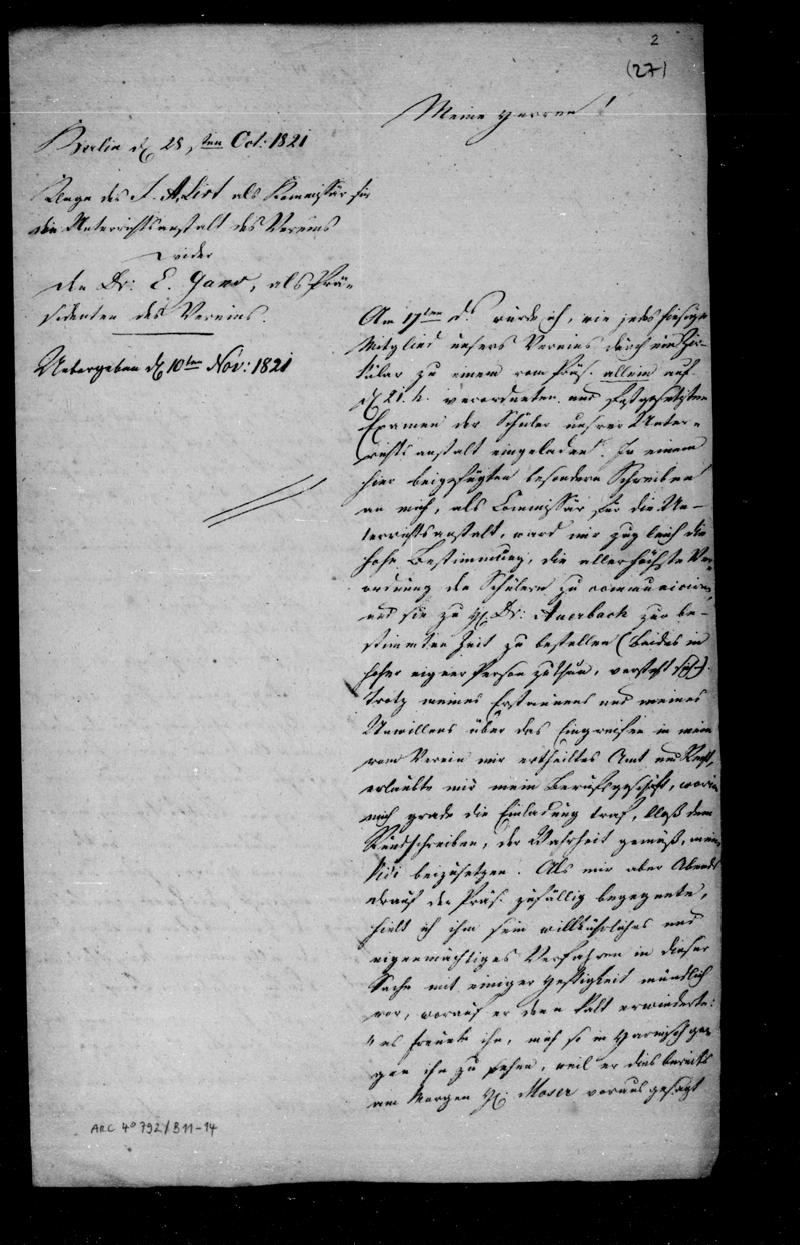 2
(27)
Meine Herren!
Berlin d 28sten Oct: 1821
Klage des J. A. List als Kommissär für
die Unterrichtsanstalt des Vereins
wider
den Dr: E. Gans, als Prä-
sidenten des Vereins.
Uebergeben d 10ten Nov: 1821
Am 17ten ds wurde ich, wie jedes hiesige
Mitglied unsers Vereins durch ein Zir-
kular zu einem vom Präs. allein auf
d 21. h. verordneten und festgesetzten
Examen der Schüler unsrer Unter-
richtsanstalt eingeladen. In einem
hier beigefügten besondern Schreiben
an mich, als Commissär für die Un-
terrichtsanstalt, ward mir zugleich die
hohe Bestimmung, die allerhöchste Ver-
ordnung den Schülern zu communiciren,
und sie zu H. Dr: Auerbach zur be-
stimmten Zeit zu bestellen (beides in
hoher eigner Person zu thun, versteht sich).
Trotz meines Erstaunens und meines
Unwillens über das Eingreifen in mein
vom Verein mir ertheiltes Amt und Recht,
erlaubte mir mein Berufsgeschäft, worin
mich grade die Einladung traf, bloß dem
Rundschreiben, der Wahrheit gemäß, mein
vidi beizusetzen. Als mir aber Abends
drauf der Präs. zufällig begegnete,
hielt ich ihm sein willkührliches und
eigenmächtiges Verfahren in dieser
Sache mit einiger Heftigkeit mündlich
vor, worauf er denn kalt erwiederte:
"es freute ihn, mich so in Harnisch ge-
gen ihn zu sehen, weil er dies bereits
am Morgen H. Moser voraus gesagt
ARC 4° 792/B11-14